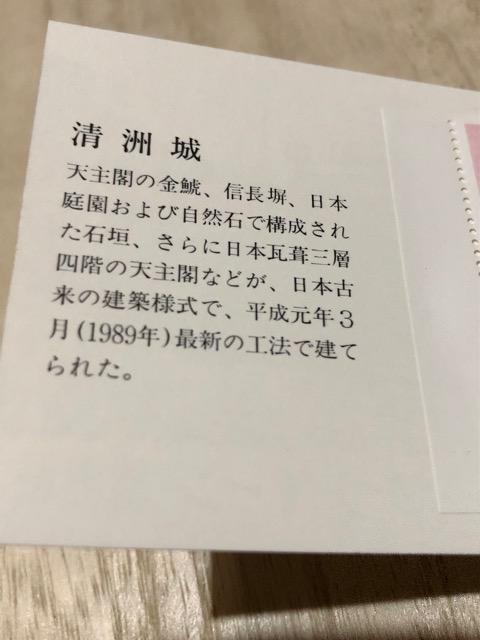 清洲城
天主閣の金鯱、信長塀、日本
庭園および自然石で構成され
た石垣、さらに日本瓦葺三層
四階の天主閣などが、日本古
来の建築様式で、平成元年3
月(1989年)最新の工法で建て
られた。